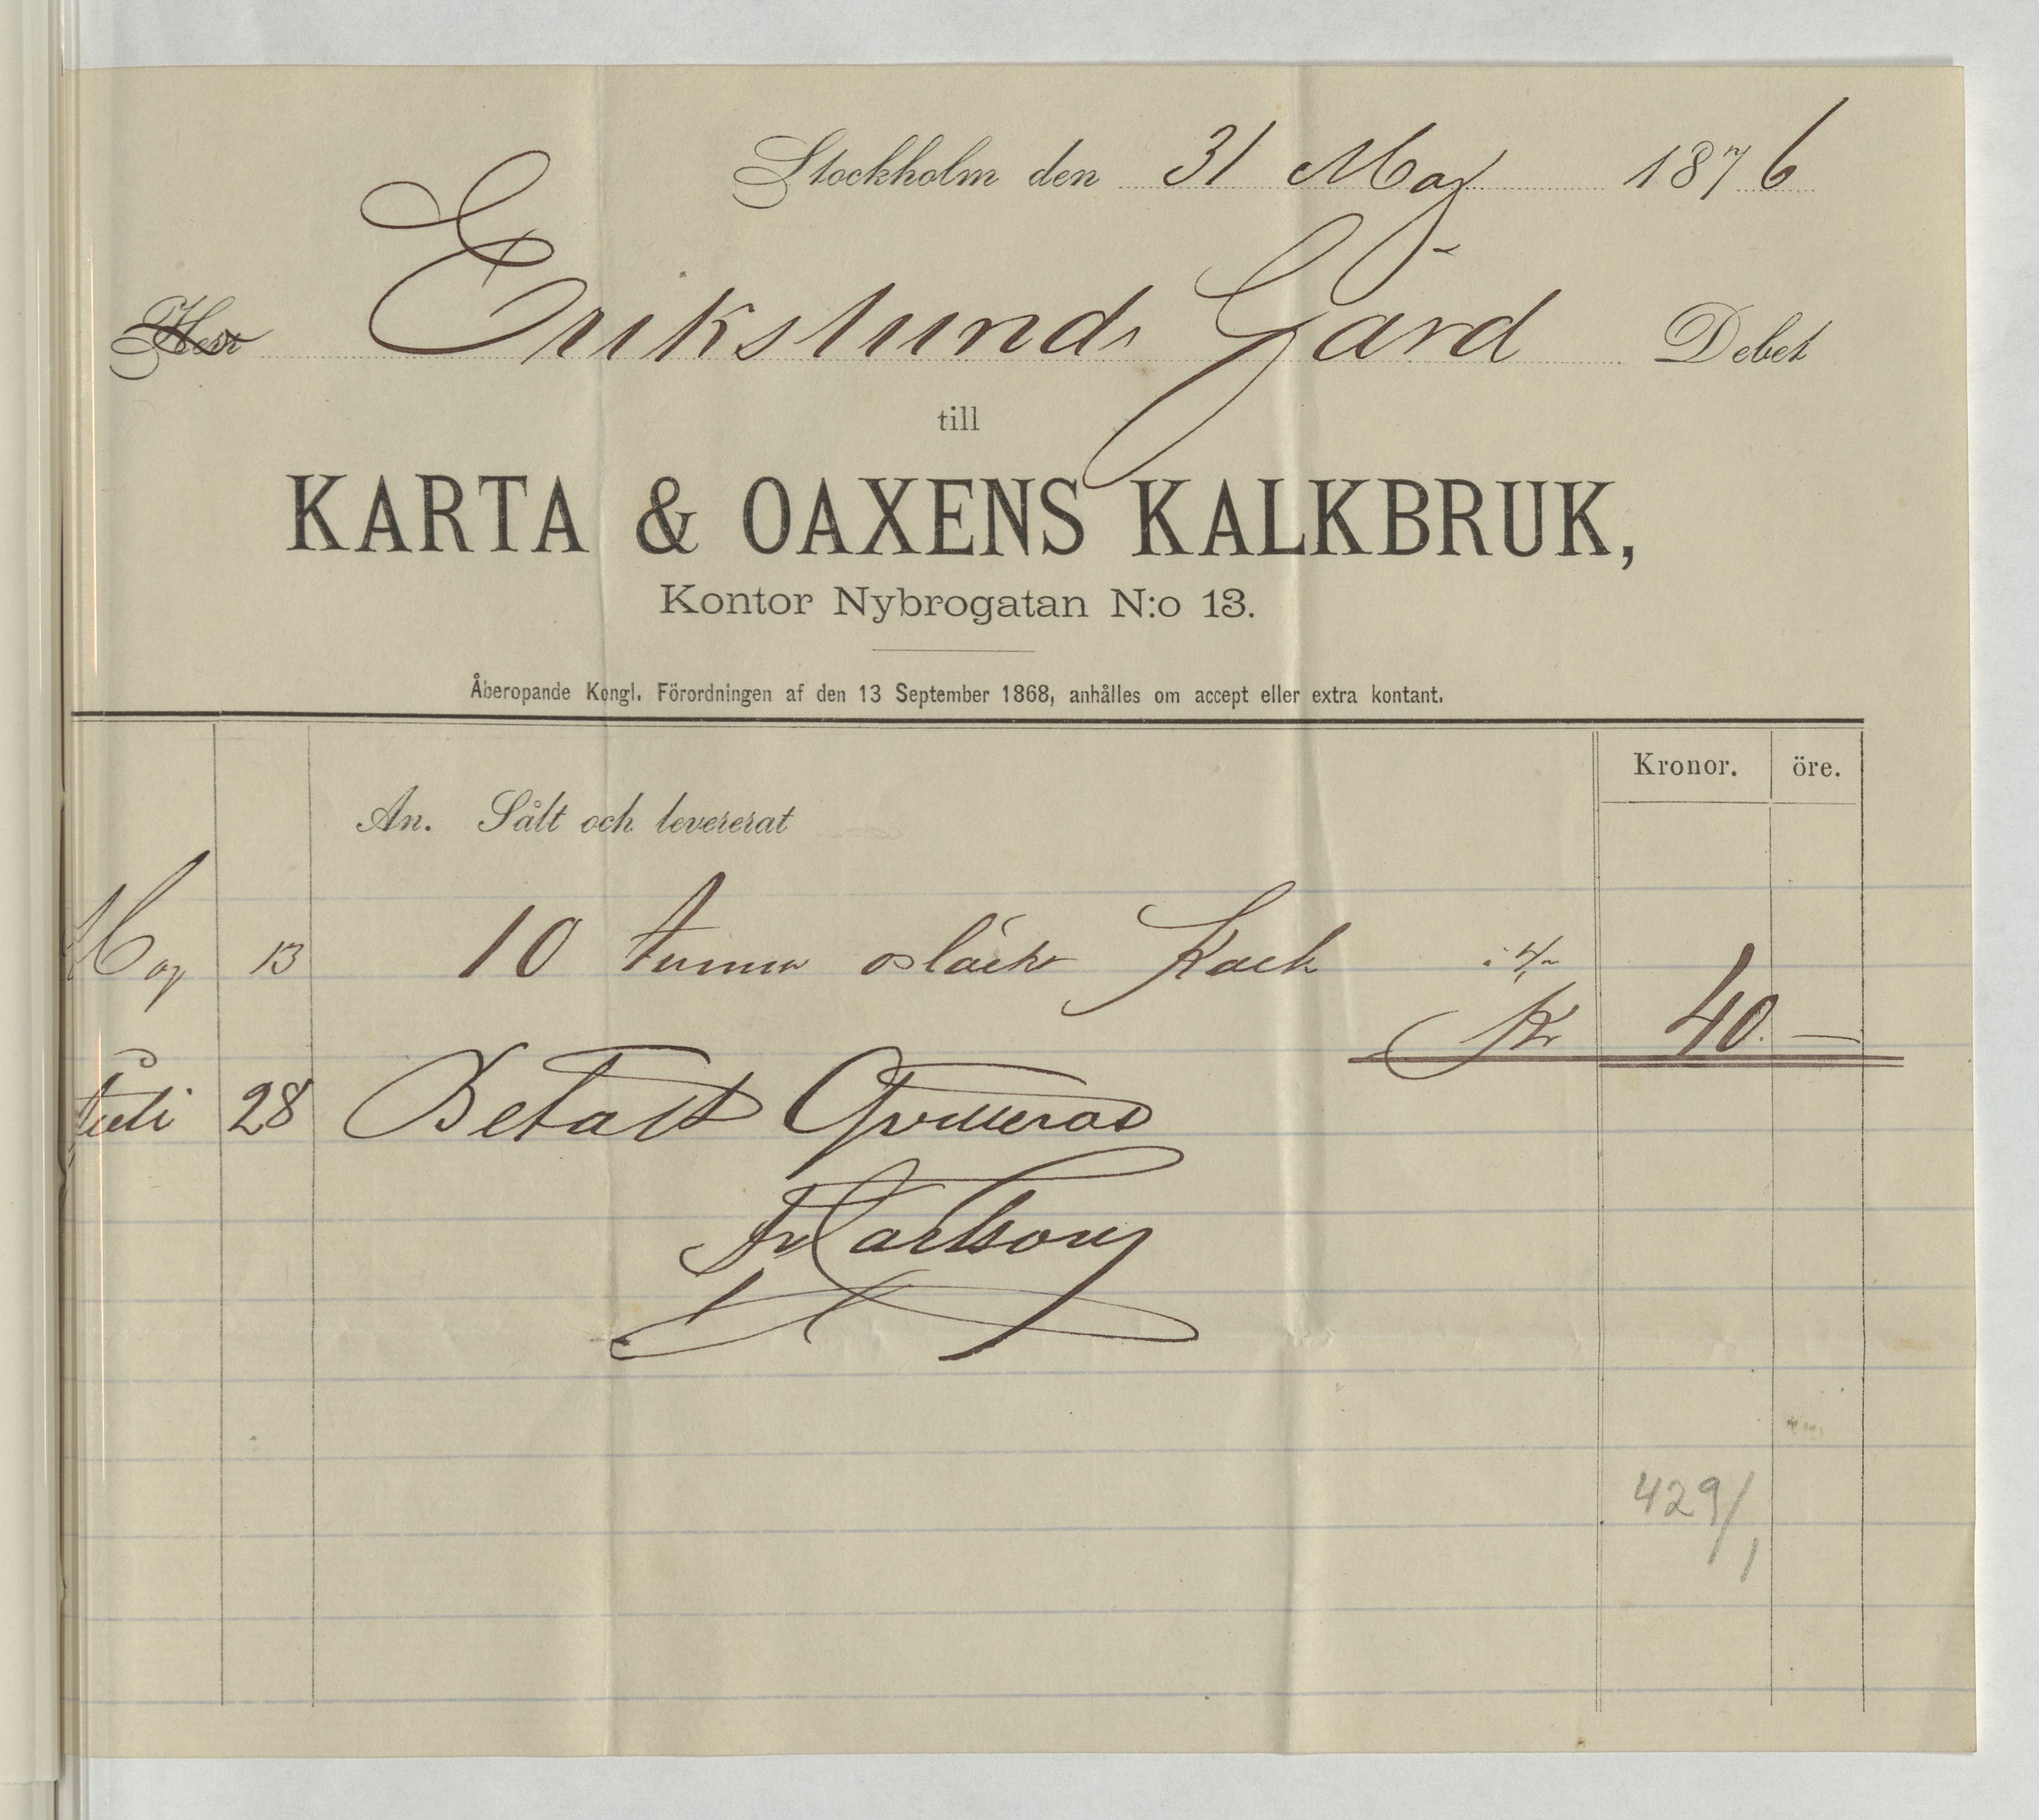 Stockholm den 31 Maj 1876
Herr Erikslunds Gård Debet
till
KARTA & OAXENS KALKBRUK,
Kontor Nybrogatan N:o 13.
Åberopande Kongl. Förordningen af den 13 September 1868, anhålles om accept eller extra kontant.
Kronor. öre.
An. Sålt och levererat
Maj 13 10 tunnor osläckt Kalk
Kr 40. —
Juli 28 Betalt Qvitteras
Fr Carlson
429/1